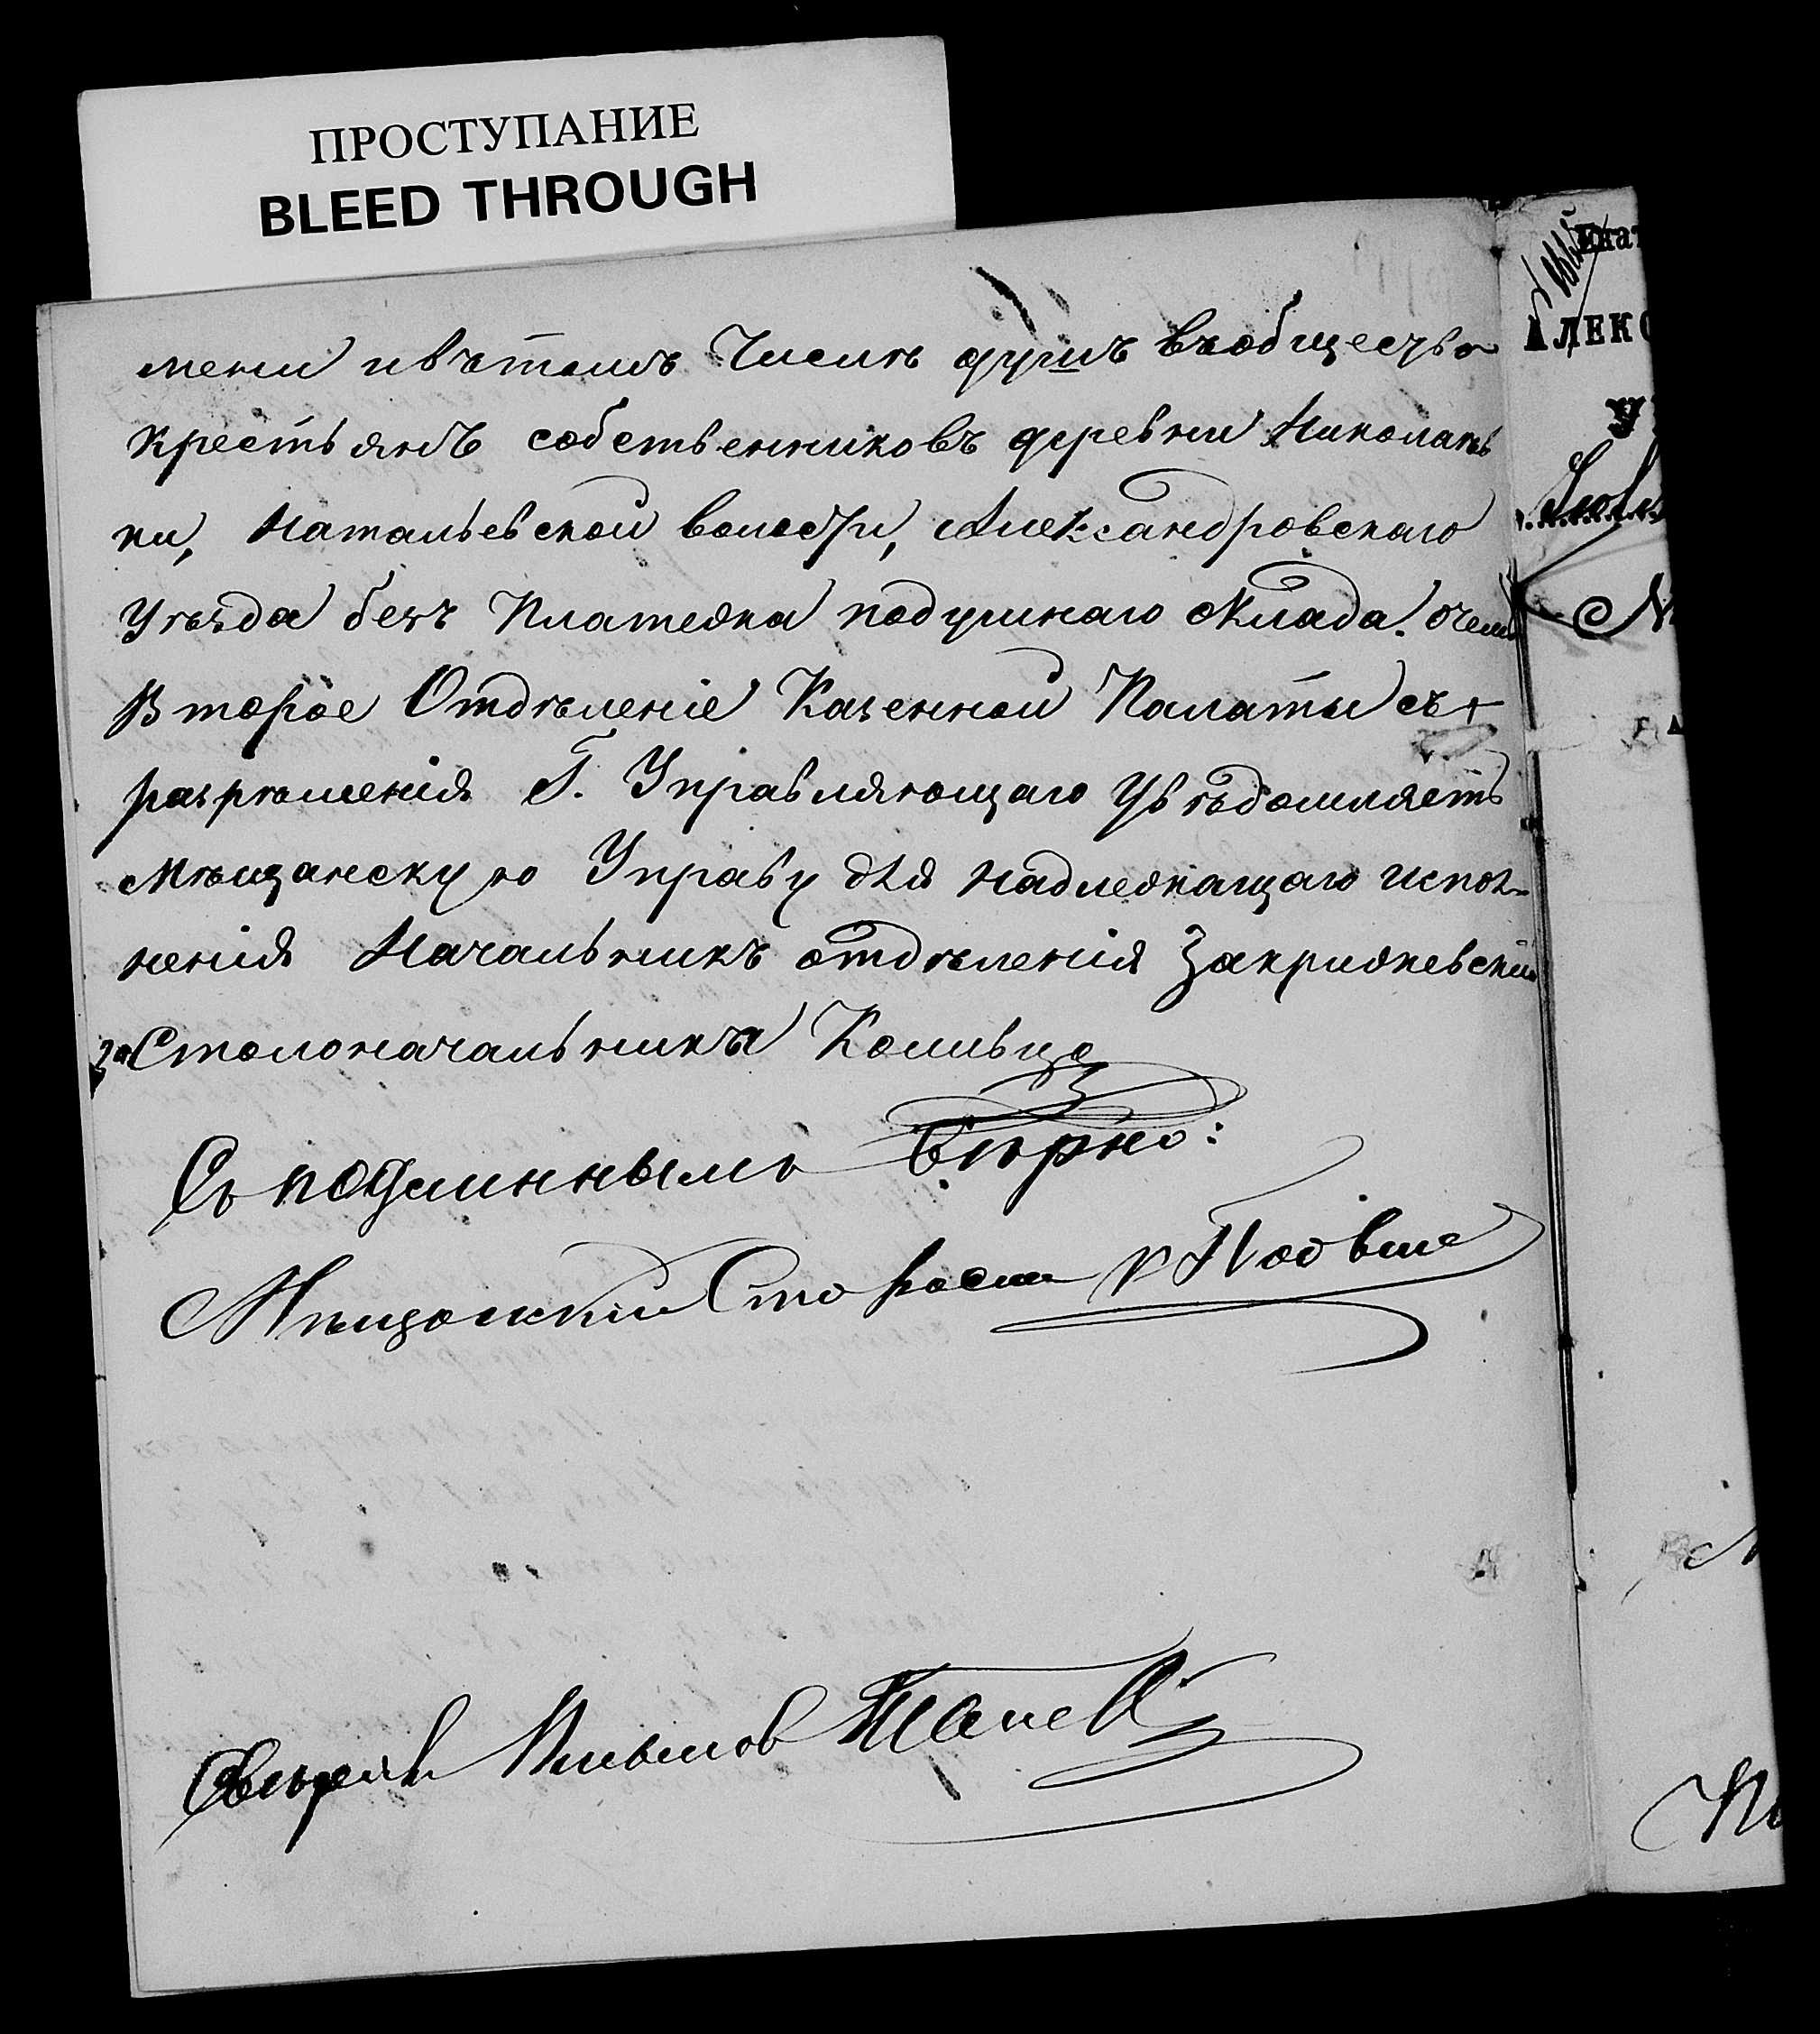 ПРОСТУПАНИЕ
BLEED THROUGH
мени ивътомъ Числѣ душъ въобщество
крестьянъ собственниковъ деревни Николаев
ки, Натальевской волости, Александровскаго
Уѣзда безъ Платежа подушнаго Оклада. Очемъ
Второе Отдѣленіе Казенной Палаты съ
разрѣшенія Г. Управляющаго Увѣдомляетъ
Мѣщанскую Управу для надлежащаго испол-
ненія Начальникъ отдѣленія Закржевскій
За Столоначальника
Съ подлиннымъ Вѣрно:
Мѣщанскій Староста
Екат
АЛЕКС